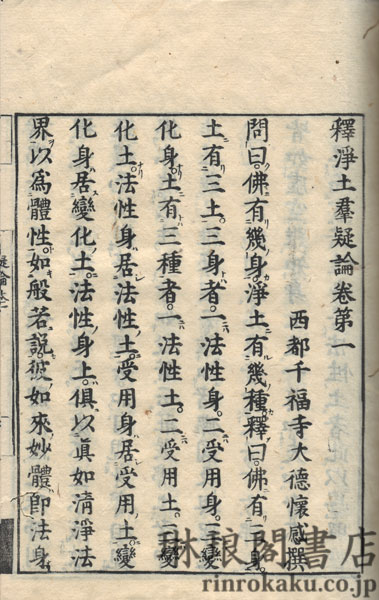 釋淨土羣疑論卷第一
西都千福寺大德懷感撰
問曰佛有幾身淨土有幾種釋曰佛有三身
土有三土三身者一法性身二受用身三變
化身土有三種者一法性土二受用土三變
化土法性身居法性土受用身居受用土變
化身居變化土法性身土俱以眞如淸淨法
界以爲體性如般若說彼如來妙體卽法身
琳琅閣書店
rinrokaku.co.jp